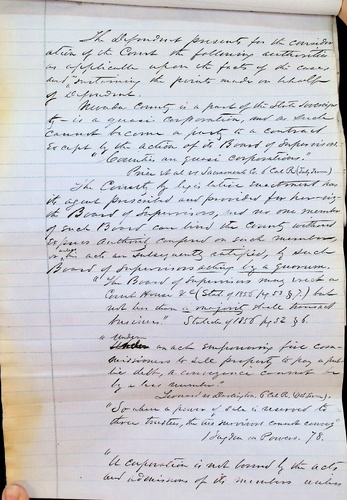 The Defendent presents for the consider-
ation of the Court the following authorities
as applicable upon the facts of the case
and sustaining the points made on behalf
of Defendent.
Nevada County is a part of the State Sovereign-
ty - is a quasi corporation, and as such
cannot become a party to a contract
except by the action of its Board of Supervisors.
"Counties are quasi corporations."
Price et al vs Sacramento Co 6 Cal R
The County by legislative enactment has
its agent prescribed and provided for her
the Board of Supervisors, and no one member
of such Board can bind the County without
express authority conferred on such member,
or his acts are subsequently ratified, by such
Board of Supervisors acting by a quorum.
"The Board of Supervisors may erect a
Court House &c (Stat of 1855 pg 53 § ) but
not less than a majority shall transact
business." Statute of 1855 pg 52 § 6.
"Under an act empowering five com-
missioners to sell property to pay a pub-
lic debt, a conveyance cannot be
by a less number"
Leonard vs Darlington 6 Cal R.
"So where a power of sale is reserved to
three trustees, the two survivors cannot convey"
1 Sugden on Powers. 78.
"A corporation is not bound by the acts
and admissions of its members unless